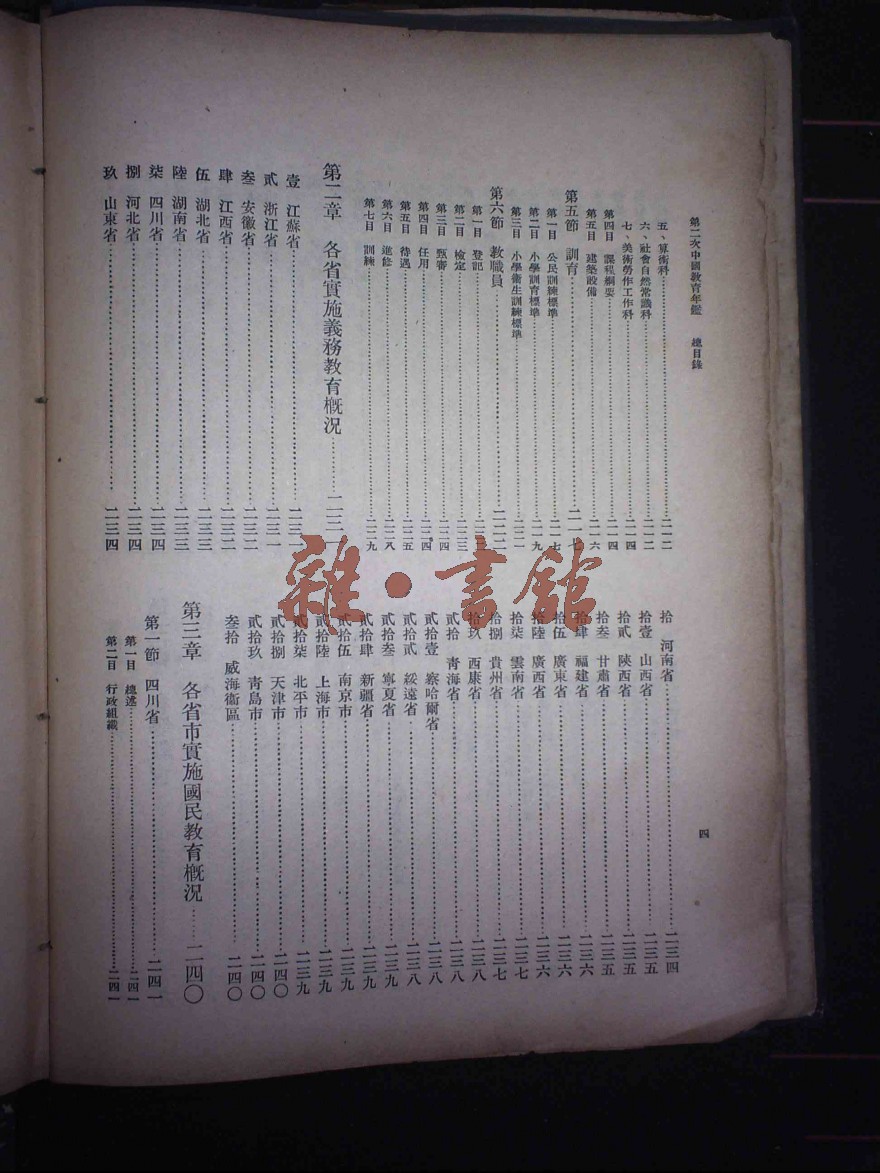 第二次中國教育年鑑　總目錄
五、算術科……二一二
六、社會自然常識科……二一二
七、美術勞作工作科……二一四
第四目　課程綱要……二一四
第五目　建築設備……二一六
第五節　訓育……二一七
第一目　公民訓練標準……二一七
第二目　小學訓育標準……二一九
第三目　小學衞生訓練標準……二二一
第六節　教職員……二二二
第一目　登記
第二目　檢定……二二三
第三目　甄審……二二四
第四目　任用……二二四
第五目　待遇……二二五
第六目　進修……二二八
第七目　訓練……二二九
第二章　各省實施義務教育概況……二三一
壹　江蘇省……二三一
貳　浙江省……二三一
叁　安徽省……二三二
肆　江西省……二三二
伍　湖北省……二三三
陸　湖南省……二三三
柒　四川省……二三四
捌　河北省……二三四
玖　山東省……二三四
拾　河南省……二三四
拾壹　山西省……二三五
拾貳　陝西省……二三五
拾叁　甘肅省……二三五
拾肆　福建省……二三六
拾伍　廣東省……二三六
拾陸　廣西省……二三六
拾柒　雲南省……二三七
拾捌　貴州省……二三七
拾玖　西康省……二三八
貳拾　青海省……二三八
貳拾壹　察哈爾省……二三八
貳拾貳　綏遠省……二三八
貳拾叁　寧夏省……二三九
貳拾肆　新疆省……二三九
貳拾伍　南京市……二三九
貳拾陸　上海市……二三九
貳拾柒　北平市……二三九
貳拾捌　天津市……二四〇
貳拾玖　青島市……二四〇
叁拾　威海衞區……二四〇
第三章　各省市實施國民教育概況……二四〇
第一節　四川省……二四一
第一目　總述……二四一
第二目　行政組織……二四一
四
雜·書館